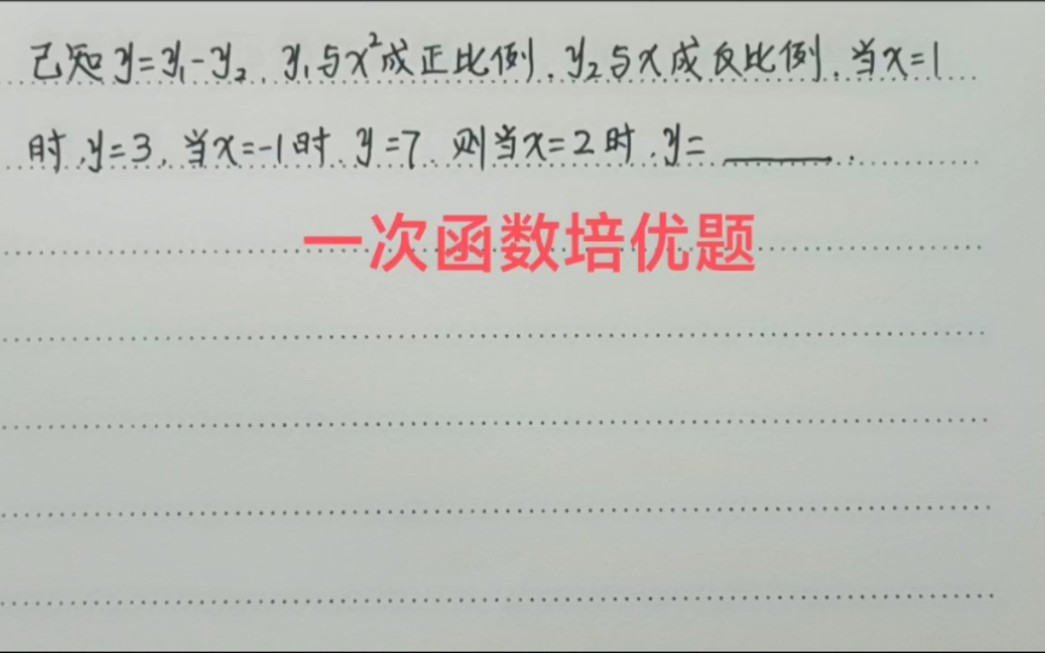 已知y=y₁-y₂.y₁与x²成正比例.y₂与x成反比例.当x=1
时.y=3.当x=-1时.y=7.则当x=2时.y=______.
一次函数培优题